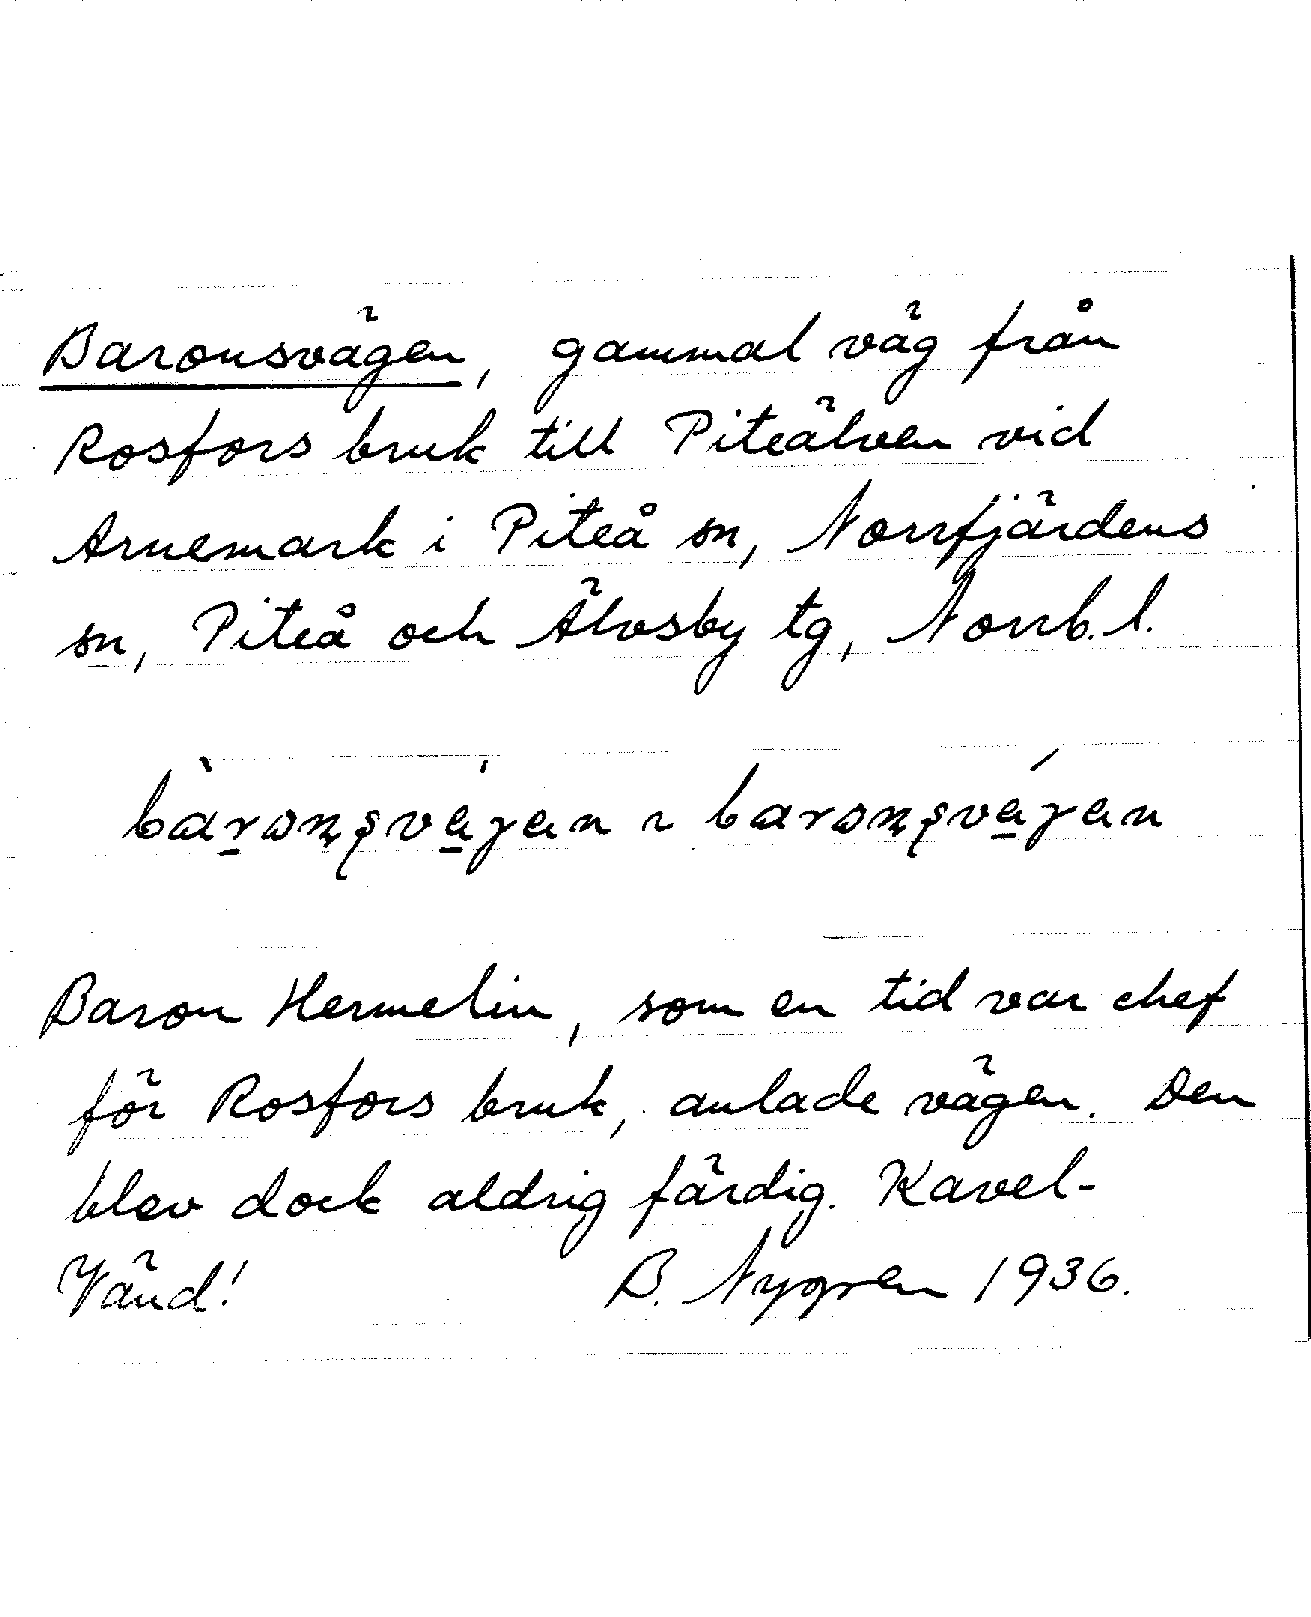 Baronsvägen, gammal väg från
Rosfors bruk till Piteälven vid
Arnemark i Piteå sn, Norrfjärdens
sn, Piteå och Älvsby tg, Norrb. l.
Baron Hermelin, som en tid var chef
för Rosfors bruk, anlade vägen. Den
blev dock aldrig färdig. Kavel-
Vänd! B. Nygren 1936.